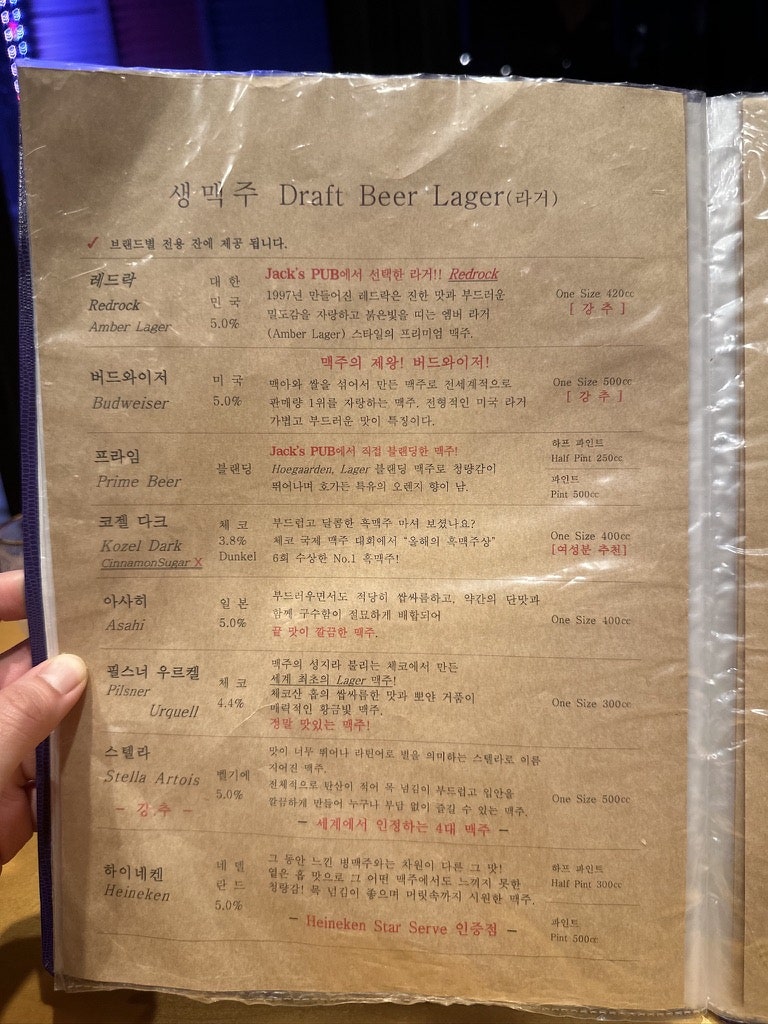 생맥주 Draft Beer Lager(라거)
✓ 브랜드별 전용 잔에 제공 됩니다.
레드락
Redrock
Amber Lager
대 한
민 국
5.0%
Jack's PUB에서 선택한 라거!! Redrock
1997년 만들어진 레드락은 진한 맛과 부드러운
밀도감을 자랑하고 붉은빛을 띠는 엠버 라거
(Amber Lager) 스타일의 프리미엄 맥주.
One Size 420cc
[ 강 추 ]
버드와이저
Budweiser
미 국
5.0%
맥주의 제왕! 버드와이저!
맥아와 쌀을 섞어서 만든 맥주로 전세계적으로
판매량 1위를 자랑하는 맥주. 전형적인 미국 라거
가볍고 부드러운 맛이 특징이다.
One Size 500cc
[ 강 추 ]
프라임
Prime Beer
블랜딩
Jack's PUB에서 직접 블랜딩한 맥주!
Hoegaarden, Lager 블랜딩 맥주로 청량감이
뛰어나며 호가든 특유의 오렌지 향이 남.
하프 파인트
Half Pint 250cc
파인트
Pint 500cc
코젤 다크
Kozel Dark
CinnamonSugar X
체 코
3.8%
Dunkel
부드럽고 달콤한 흑맥주 마셔 보셨나요?
체코 국제 맥주 대회에서 "올해의 흑맥주상"
6회 수상한 No.1 흑맥주!
One Size 400cc
[여성분 추천]
아사히
Asahi
일 본
5.0%
부드러우면서도 적당히 쌉싸름하고, 약간의 단맛과
함께 구수함이 절묘하게 배합되어
끝 맛이 깔끔한 맥주.
One Size 400cc
필스너 우르켈
Pilsner
Urquell
체 코
4.4%
맥주의 성지라 불리는 체코에서 만든
세계 최초의 Lager 맥주!
체코산 홉의 쌉싸름한 맛과 뽀얀 거품이
매력적인 황금빛 맥주.
정말 맛있는 맥주!
One Size 300cc
스텔라
Stella Artois
- 강 추 -
벨기에
5.0%
맛이 너무 뛰어나 라틴어로 별을 의미하는 스텔라로 이름
지어진 맥주.
전체적으로 탄산이 적어 목 넘김이 부드럽고 입안을
깔끔하게 만들어 누구나 부담 없이 즐길 수 있는 맥주.
- 세계에서 인정하는 4대 맥주 -
One Size 500cc
하이네켄
Heineken
네 델
란 드
5.0%
그 동안 느낀 병맥주와는 차원이 다른 그 맛!
옅은 홉 맛으로 그 어떤 맥주에서도 느끼지 못한
청량감! 목 넘김이 좋으며 머릿속까지 시원한 맥주.
- Heineken Star Serve 인증점 -
하프 파인트
Half Pint 300cc
파인트
Pint 500cc